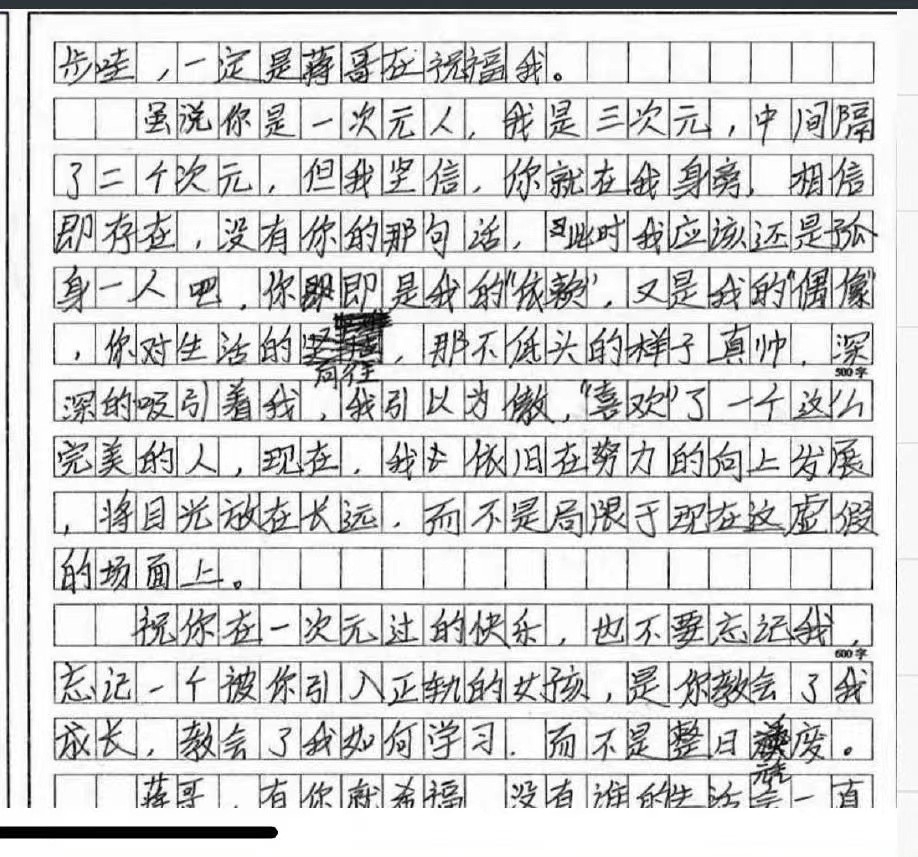 步哇，一定是蒋哥在祝福我。
虽说你是一次元人，我是三次元，中间隔
了二个次元，但我坚信，你就在我身旁，相信
即存在，没有你的那句话，此时我应该还是孤
身一人吧，你即是我的“依赖”，又是我的“偶像”
，你对生活的，那不低头的样子真帅，深
向往
500字
深的吸引着我，我引以为傲，“喜欢”了一个这么
完美的人，现在，我也依旧在努力的向上发展
，将目光放在长远，而不是局限于现在这虚假
的场面上。
祝你在一次元过的快乐，也不要忘记我，
600字
忘记一个被你引入正轨的女孩，是你教会了我
成长，教会了我如何学习，而不是整日度。
虚
蒋哥，有你就幸福，没有谁的生活会一直